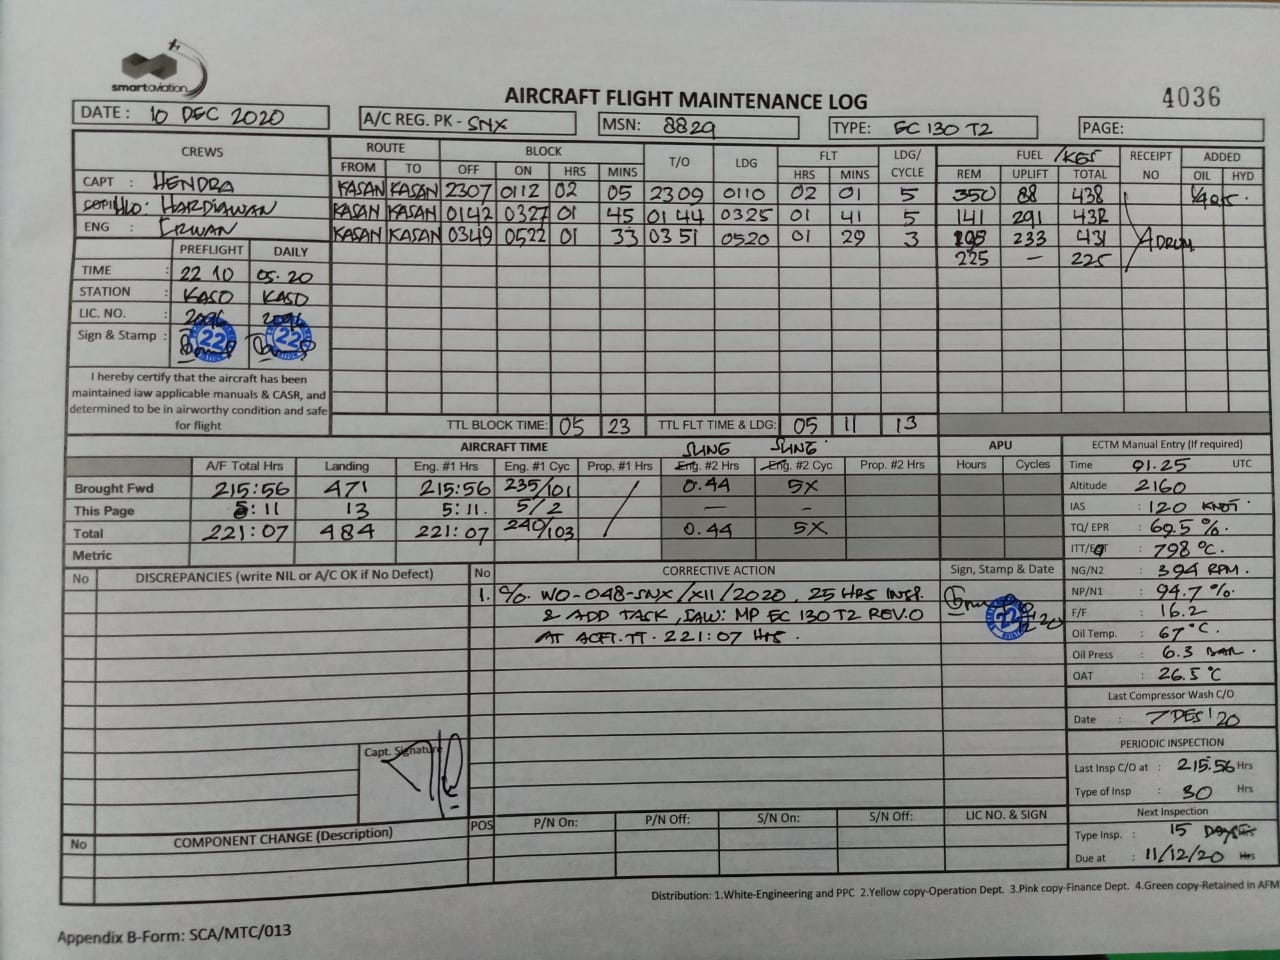 smartaviation
AIRCRAFT FLIGHT MAINTENANCE LOG
4036
DATE : 10 DEC 2020
A/C REG. PK - SNX
MSN: 8829
TYPE: EC 130 T2
PAGE:
CREWS
ROUTE BLOCK T/O LDG FLT LDG/ CYCLE FUEL /KGS RECEIPT NO ADDED
FROM TO OFF ON HRS MINS HRS MINS REM UPLIFT TOTAL OIL HYD
CAPT : HENDRA
KASAN KASAN 2307 0112 02 05 2309 0110 02 01 5 350 88 438
HLO: HARDIAWAN
KASAN KASAN 0142 0327 01 45 0144 0325 01 41 5 141 291 432
ENG : ERWAN
KASAN KASAN 0349 0522 01 33 0351 0520 01 29 3 233 431
225 — 225
DRUM
PREFLIGHT DAILY
TIME : 22 10 05.20
STATION : KASO KASO
LIC. NO. : 2096 2096
Sign & Stamp : 22 22
I hereby certify that the aircraft has been
maintained iaw applicable manuals & CASR, and
determined to be in airworthy condition and safe
for flight
TTL BLOCK TIME: 05 23 TTL FLT TIME & LDG: 05 11 13
AIRCRAFT TIME
SLING SLING
A/F Total Hrs Landing Eng. #1 Hrs Eng. #1 Cyc Prop. #1 Hrs Eng. #2 Hrs Eng. #2 Cyc Prop. #2 Hrs
Brought Fwd 215:56 471 215:56 235/101 0.44 5X
This Page 5:11 13 5:11. 5/2 — -
Total 221:07 484 221:07 240/103 0.44 5X
Metric
APU
Hours Cycles
ECTM Manual Entry (If required)
Time 01.25 UTC
Altitude 2160
IAS : 120 KNOT
TQ/ EPR : 69.5 %.
ITT/EGT : 798 °C.
NG/N2 : 394 RPM.
NP/N1 : 94.7 %.
F/F : 16.2
Oil Temp. : 67°C.
Oil Press : 6.3 BAR.
OAT : 26.5 °C
Last Compressor Wash C/O
Date : 7 DES '20
PERIODIC INSPECTION
Last Insp C/O at : 215.56 Hrs
Type of Insp : 30 Hrs
Next Inspection
Type Insp. : 15 DAYS Hrs
Due at : 11/12/20 Hrs
No DISCREPANCIES (write NIL or A/C OK if No Defect)
No CORRECTIVE ACTION Sign, Stamp & Date
1. C/O. WO-048-SNX/XII/2020, 25 HRS INSP.
& ADD TASK, IAW: MP EC 130 T2 REV.0
AT ACFT.TT. 221:07 HRS.
22
Capt. Signature
No COMPONENT CHANGE (Description) POS P/N On: P/N Off: S/N On: S/N Off: LIC NO. & SIGN
Distribution: 1.White-Engineering and PPC 2.Yellow copy-Operation Dept. 3.Pink copy-Finance Dept. 4.Green copy-Retained in AFM
Appendix B-Form: SCA/MTC/013